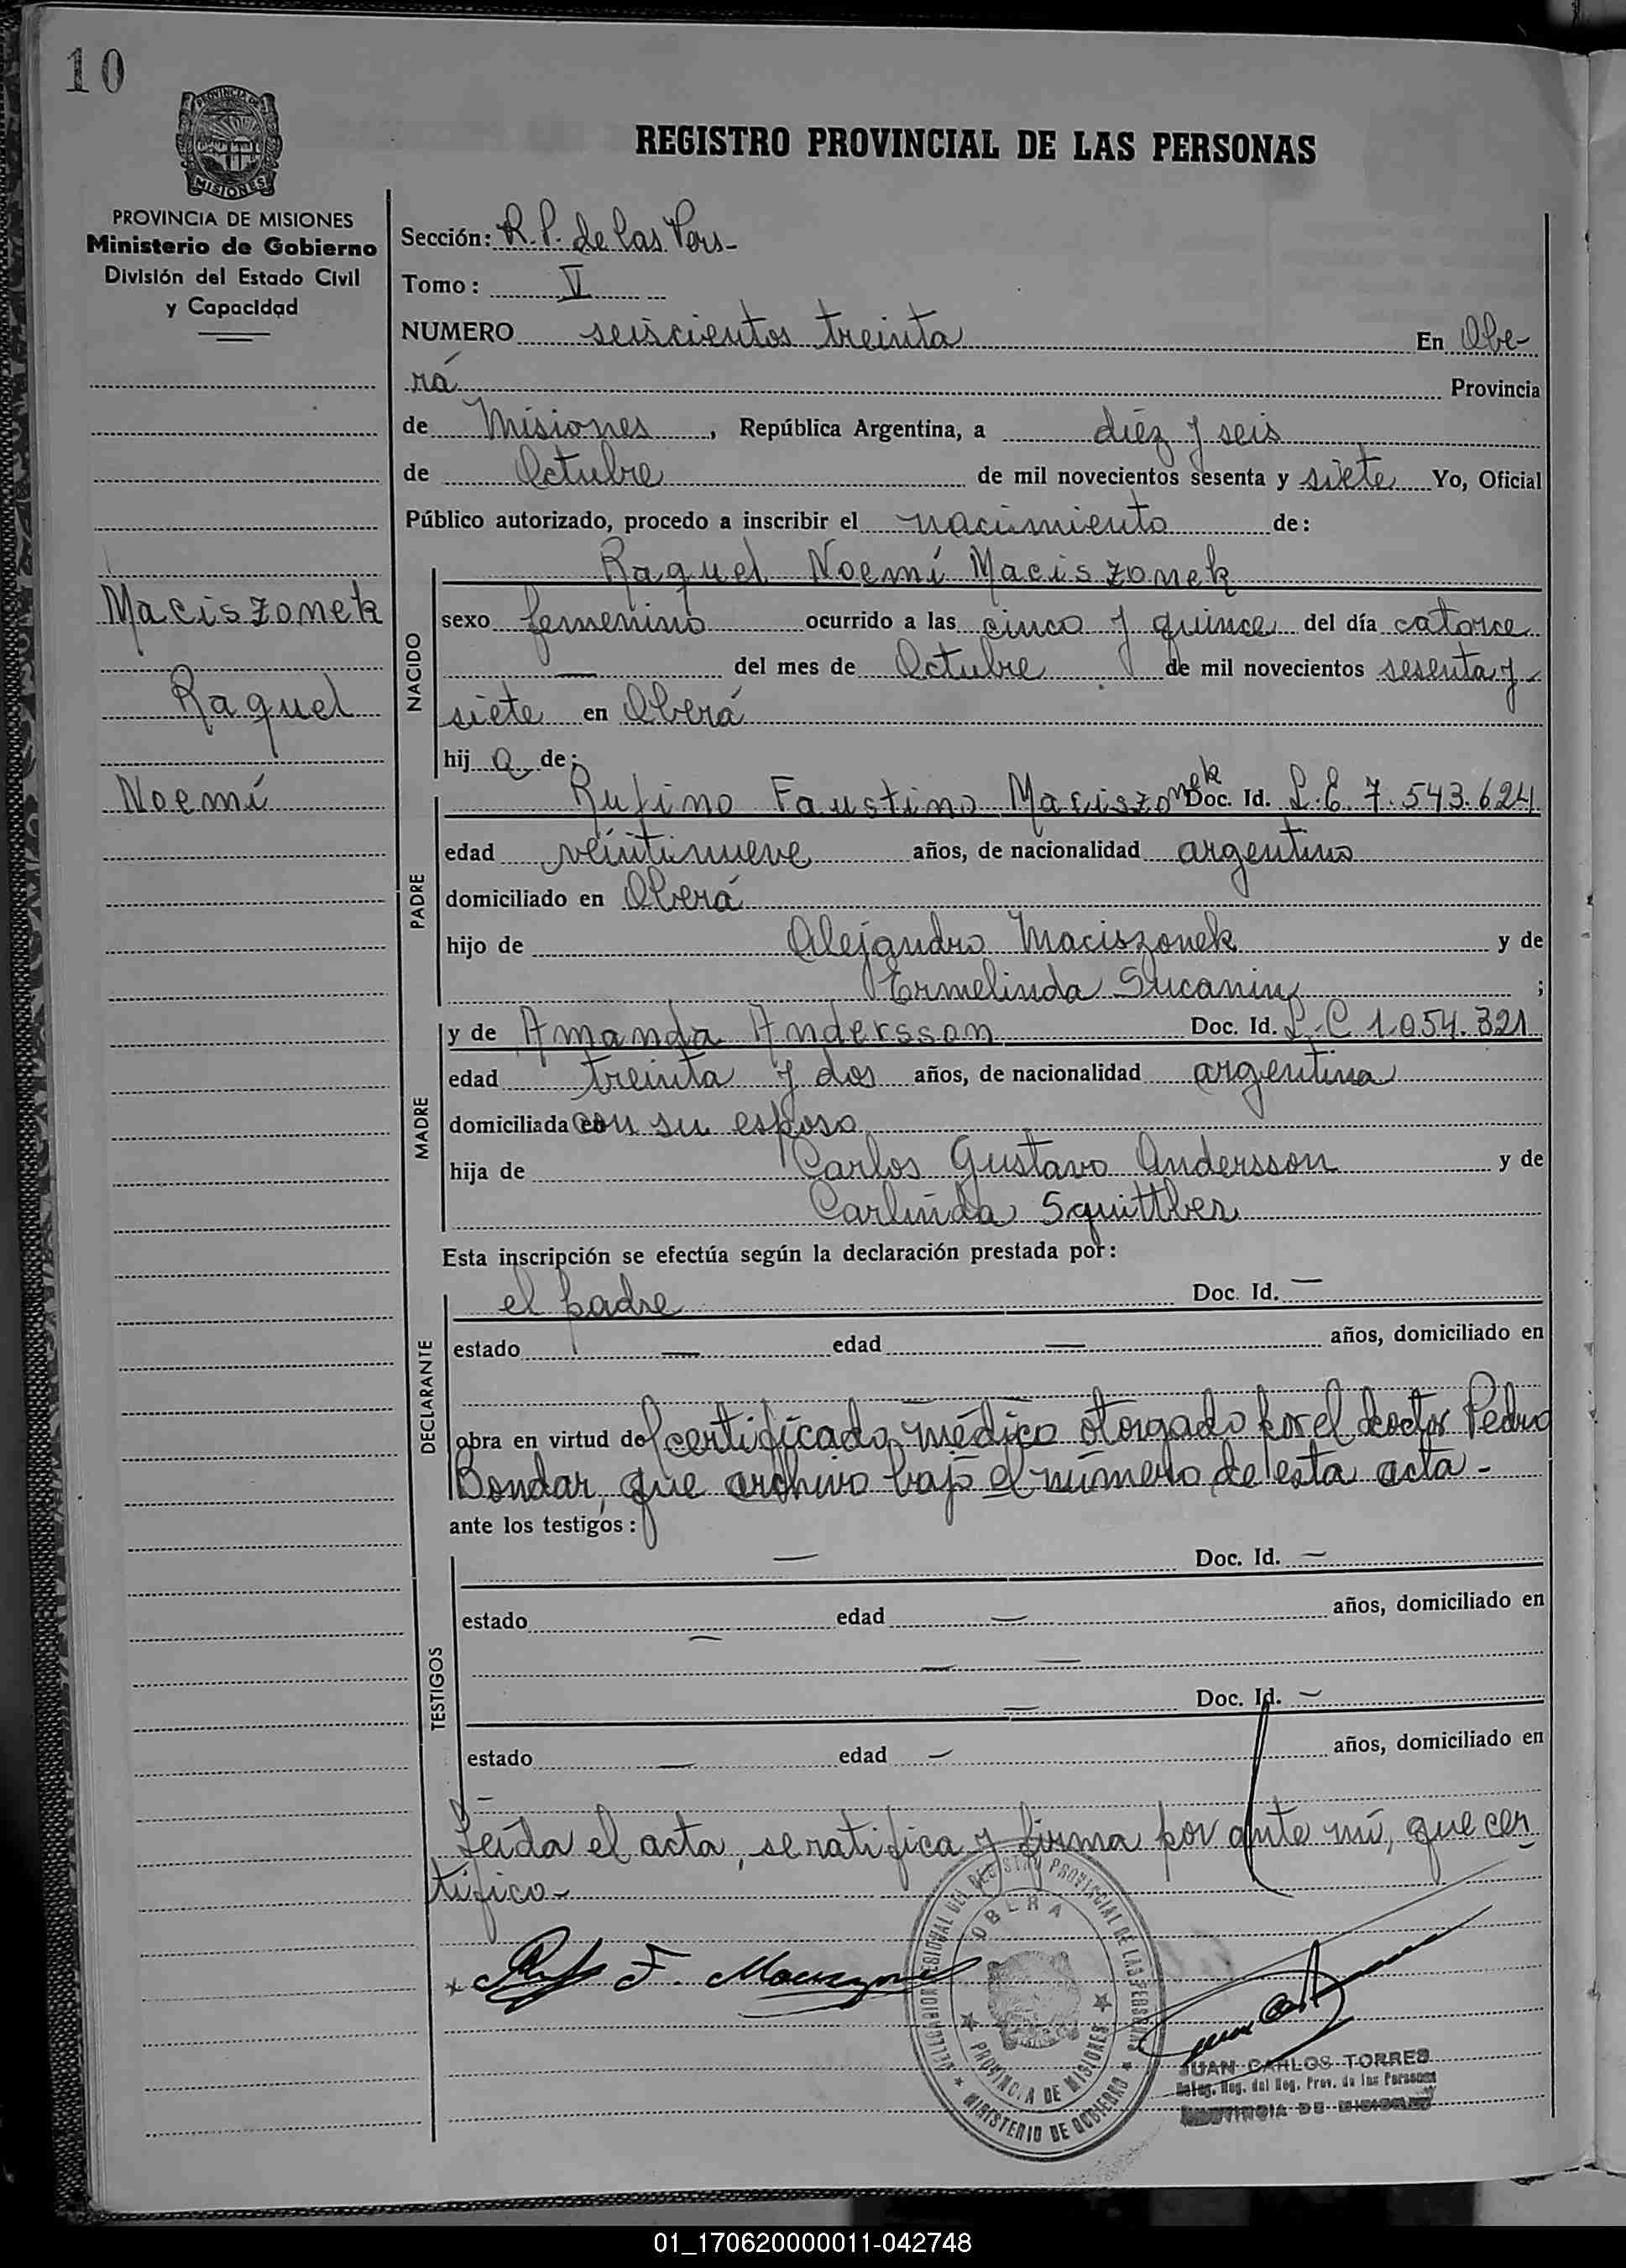 10
PROVINCIA DE
MISIONES
REGISTRO PROVINCIAL DE LAS PERSONAS
PROVINCIA DE MISIONES
Ministerio de Gobierno
División del Estado Civil
y Capacidad
Maciszonek
Raquel
Noemí
Sección: R.P. de las Pers-
Tomo: V
NUMERO seiscientos treinta En Obe-
rá Provincia
de Misiones, República Argentina, a diéz y seis
de Octubre de mil novecientos sesenta y siete Yo, Oficial
Público autorizado, procedo a inscribir el nacimiento de:
NACIDO
Raquel Noemí Maciszonek
sexo femenino ocurrido a las cinco y quince del día catorce
— del mes de Octubre de mil novecientos sesenta y
siete en Oberá
hij a de:
PADRE
Rufino Faustino Maciszonek Doc. Id. L.E. 7.543.624
edad veintinueve años, de nacionalidad argentino
domiciliado en Oberá
hijo de Alejandro Maciszonek y de
Ermelinda ;
MADRE
y de Amanda Andersson Doc. Id. L.C 1.054.321
edad treinta y dos años, de nacionalidad argentina
domiciliada con su esposo
hija de Carlos Gustavo Andersson y de
Carlinda Squittber
Esta inscripción se efectúa según la declaración prestada por:
DECLARANTE
el padre Doc. Id. —
estado — edad — años, domiciliado en
obra en virtud del certificado médico otorgado por el doctor Pedro
Bondar, que archivo bajo el número de esta acta -
ante los testigos:
TESTIGOS
— Doc. Id. —
estado — edad — años, domiciliado en
— —
— Doc. Id. —
estado — edad — años, domiciliado en
—
Leída el acta, se ratifica y firma por ante mí, que cer
tifico-
x F.
DELEGACION REGIONAL DEL REGISTRO PROVINCIAL DE LAS PERSONAS
OBERA
PROVINCIA DE MISIONES
MINISTERIO DE GOBIERNO
JUAN CARLOS TORRES
Deleg. Reg. del Reg. Prov. de las Personas
PROVINCIA DE MISIONES
01_170620000011-042748